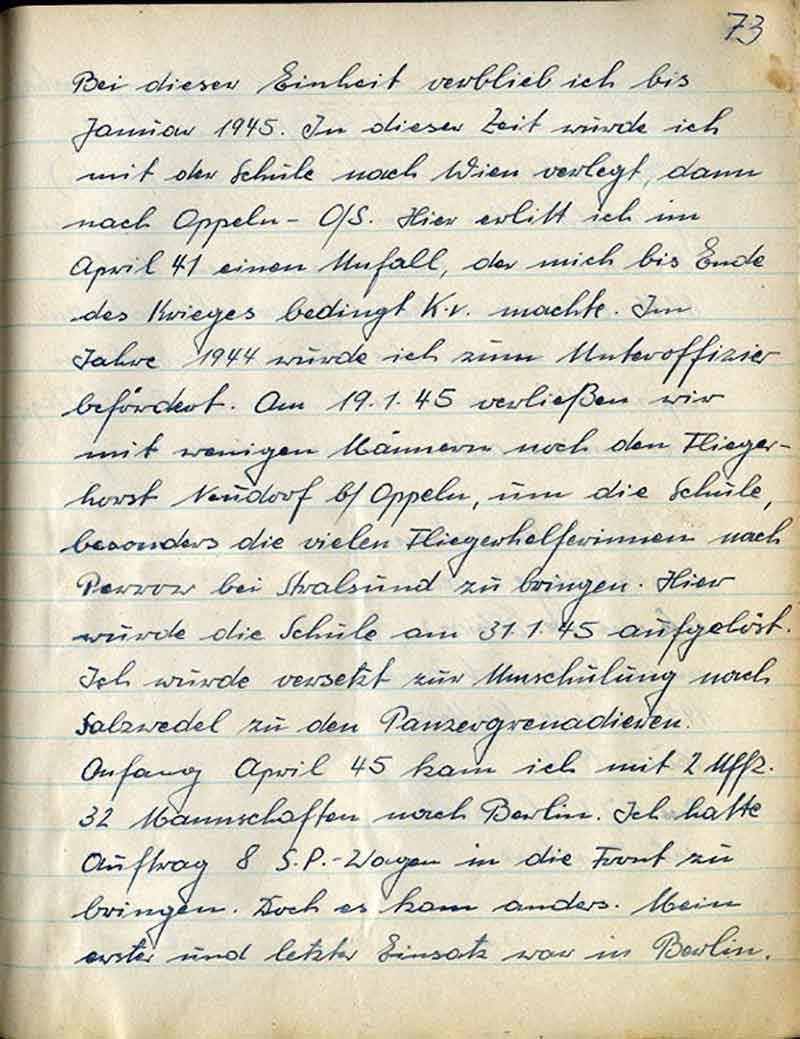 73
Bei dieser Einheit verblieb ich bis
Januar 1945. In dieser Zeit wurde ich
mit der Schule nach Wien verlegt, dann
nach Oppeln - O/S. Hier erlitt ich im
April 41 einen Unfall, der mich bis Ende
des Krieges bedingt K.v. machte. Im
Jahre 1944 wurde ich zum Unteroffizier
befördert. Am 19.1.45 verließen wir
mit wenigen Männern noch den Flieger-
horst Neudorf b/Oppeln, um die Schule,
besonders die vielen Fliegerhelferinnen nach
bei Stralsund zu bringen. Hier
wurde die Schule am 31.1.45 aufgelöst.
Ich wurde versetzt zur Umschulung nach
Salzwedel zu den Panzergrenadieren.
Anfang April 45 kam ich mit 2 Uffz.
32 Mannschaften nach Berlin. Ich hatte
Auftrag 8 S.P.-Wagen in die Front zu
bringen. Doch es kam anders. Mein
erster und letzter Einsatz war in Berlin.